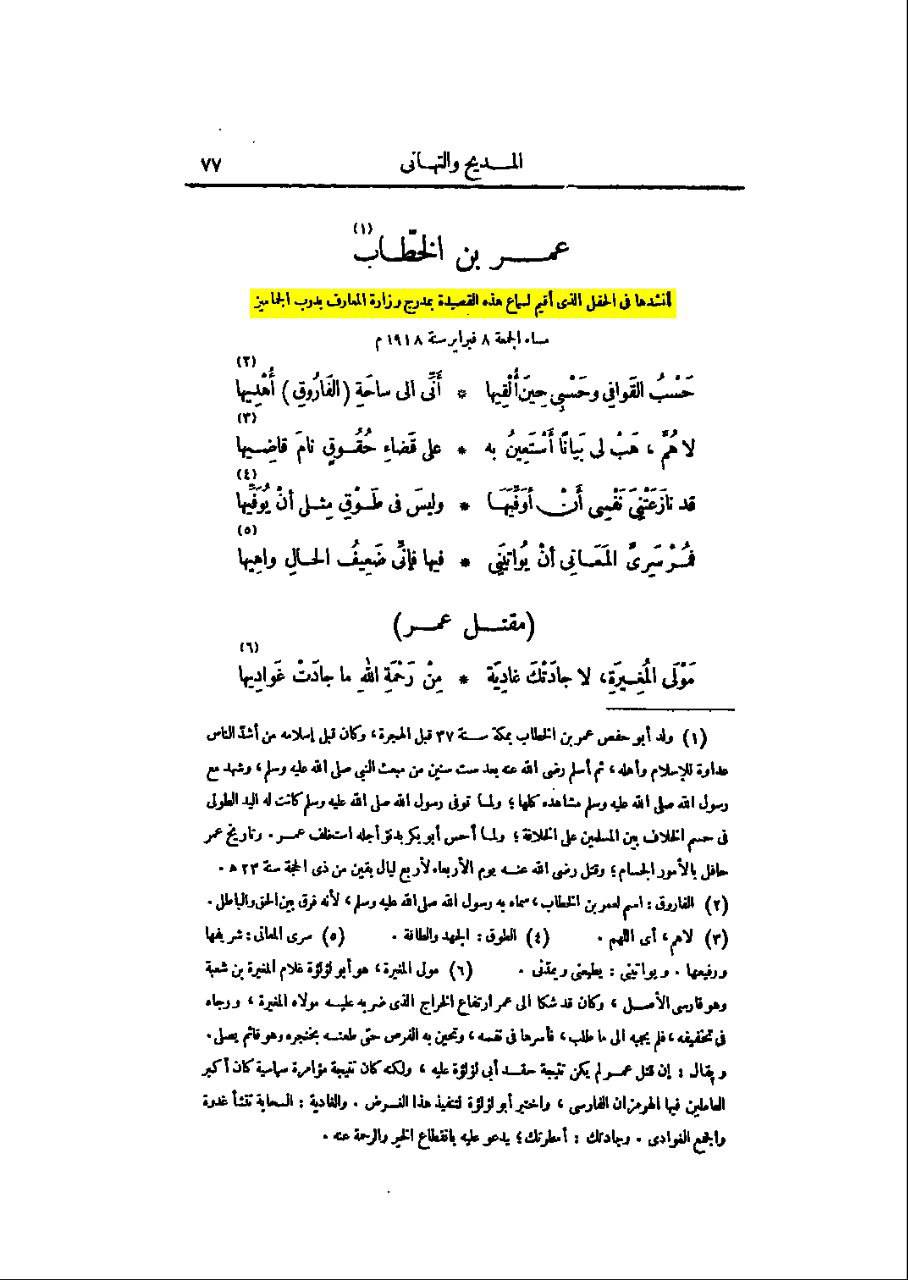 المــديح والتهـانى ٧٧
عمــر بن الخطّـاب (١)
أنشدها فى الحفل الذى أقيم لسماع هذه القصيدة بمدرج وزارة المعارف بدرب الجماميز
مساء الجمعة ٨ فبراير سنة ١٩١٨ م
حَسْبُ القَوافِي وحَسْبِي حِينَ أُلْقِيها * أَنِّى الى ساحَةِ (الفَارُوقِ) أُهْدِيها (٢)
لا هُمَّ ، هَبْ لى بَيَانًا أَسْتَعِينُ به * على قَضاءِ حُقُوقٍ نامَ قاضِيها (٣)
قد نازَعَتْنِىَ نَفْسِى أَنْ أُوَفِّيَهَا * وليسَ فى طَوْقِ مِثلِى أنْ يُوَفِّيها (٤)
فمُرْ سَرِىَّ المَعَـانِى أنْ يُواتِيَنِي * فيها فإنِّى ضَعِيفُ الحـالِ واهِيها (٥)
(مقتــل عمــر)
مَوْلَى المُغِيرَةِ، لا جادَتْكَ غادِيَة * مِنْ رَحْمَةِ اللهِ ما جادَتْ غَوادِيها (٦)
(١) ولد أبو حفص عمر بن الخطاب بمكة سنة ٣٧ قبل الهجرة ، وكان قبل إسلامه من أشدّ الناس
عداوة للإسلام وأهله ، ثم أسلم رضى الله عنه بعد ست سنين من مبعث النبي صلى الله عليه وسلم ، وشهد مع
رسول الله صلى الله عليه وسلم مشاهده كلها ؛ ولما توفى رسول الله صلى الله عليه وسلم كانت له اليد الطولى
فى حسم الخلاف بين المسلمين على الخلافة ؛ ولما أحس أبو بكر بدنو أجله استخلف عمر . وتاريخ عمر
حافل بالأمور الجسام ؛ وقتل رضى الله عنه يوم الأربعاء لأربع ليال بقين من ذى الحجة سنة ٢٣ ه .
(٢) الفاروق : اسم لعمر بن الخطاب ، سماه به رسول الله صلى الله عليه وسلم ، لأنه فرق بين الحق والباطل .
(٣) لاهم ، أى اللهم . (٤) الطوق : الجهد والطاقة . (٥) سرى المعانى : شريفها
ورفيعها . ويواتينى : يطيعنى ويمدّنى . (٦) مولى المغيرة ، هو أبو لؤلؤة غلام المغيرة بن شعبة
وهو فارسى الأصل ، وكان قد شكا الى عمر ارتفاع الخراج الذى ضربه عليه مولاه المغيرة ، ورجاه
فى تخفيفه ، فلم يجبه الى ما طلب ، فأسرها فى نفسه ، وتحين به الفرص حتى طعنه بخنجره وهو قائم يصلى .
ويقال : إن قتل عمر لم يكن نتيجة حقد أبى لؤلؤة عليه ، ولكنه كان نتيجة مؤامرة سياسية كان أكبر
العاملين فيها الهرمزان الفارسى ، واختير أبو لؤلؤة لتنفيذ هذا الغرض . والغادية : السحابة تنشأ غدوة
والجمع الغوادى . وجادتك : أمطرتك ؛ يدعو عليه بانقطاع الخير والرحمة عنه .